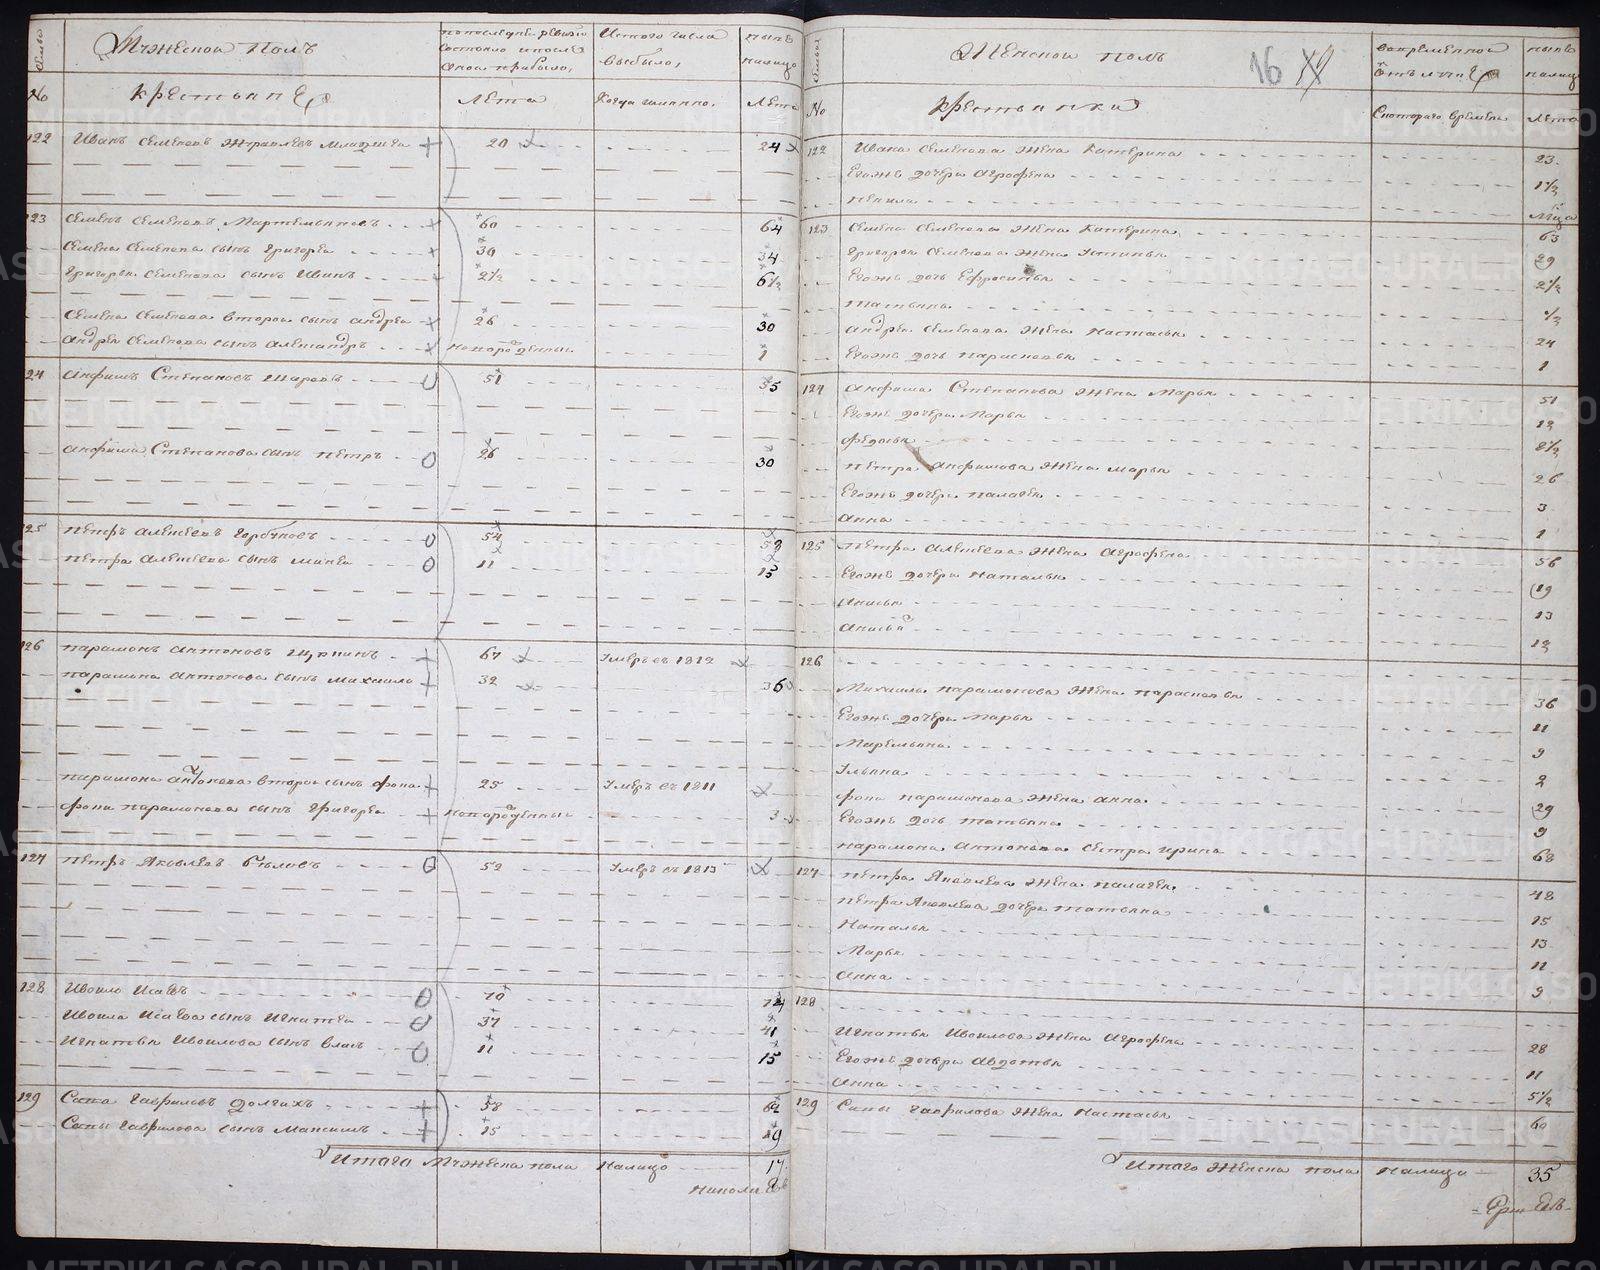 Семьи
Мужескои полъ
№
крестьяне
по последней ревизии состояло и после оной прибыло,
Лета
Ис того числа выбыло,
Когда имянно.
ныне налицо
Лета
122
Иванъ Семеновъ Журавлевъ младшей
20
24
123
Семенъ Семеновъ Мартемьяновъ
60
64
Семена Семенова сынъ григореи
30
34
григорья Семенова сынъ Иванъ
2½
6½
Семена Семенова второи сынъ андреи
26
30
андрея Семенова сынъ александръ
новорожденныи
1
124
анфимъ Степановъ Шаровъ
51
55
анфима Степанова сынъ петръ
26
30
125
петръ алексеевъ горбуновъ
54
58
петра алексеева сынъ михеи
11
15
126
парамонъ антоновъ
67
умре въ 1812
парамона антонова сынъ михаило
32
36
парамона антонова второи сынъ фока
25
умре въ 1811
фоки парамонова сынъ григореи
новорожденныи
3
127
петръ Яковлевъ беловъ
52
умре въ 1813
128
Ивоило Исаевъ
70
74
Ивоила Исаева сынъ Игнатеи
37
41
Игнатья Ивоилова сынъ власъ
11
15
129
Сапа гавриловъ долгихъ
58
62
Сапы гаврилова сынъ Максимъ
15
19
Итого Мужеска пола налицо
17
Семьи
Женскои полъ
16
№
крестьянки
во временнои отлучке
С которого времени
ныне налицо
Лета
122
Ивана Семенова жена Катерина
23
Егожъ дочери агрофена
1½
ненила
123
Семена Семенова жена Катерина
63
григорья Семенова жена устинья
29
Егожъ дочь Ефросинья
2½
татьяна
½
андрея Семенова жена настасья
24
Егожъ дочь парасковья
1
124
анфима Степанова жена Марья
51
Егожъ дочери Марья
12
федосья
8½
петра анфимова жена марья
26
Егожъ дочери палагея
3
анна
1
125
петра алексеева жена агрофена
56
Егожъ дочери наталья
19
анисья
13
анисья
12
126
михаила парамонова жена парасковья
36
Егожъ дочери марья
11
Маремьяна
9
Ульяна
2
фоки парамонова жена анна
29
Егожъ дочь татьяна
9
парамона антонова сестра ирина
68
127
петра Яковлева жена палагея
48
петра Яковлева дочери татьяна
15
Наталья
13
Марья
11
анна
9
128
Игнатья Ивоилова жена агрофена
28
Егожъ дочери авдотья
11
анна
5½
129
Сапы гаврилова жена настасья
60
Итого женска пола налицо
35